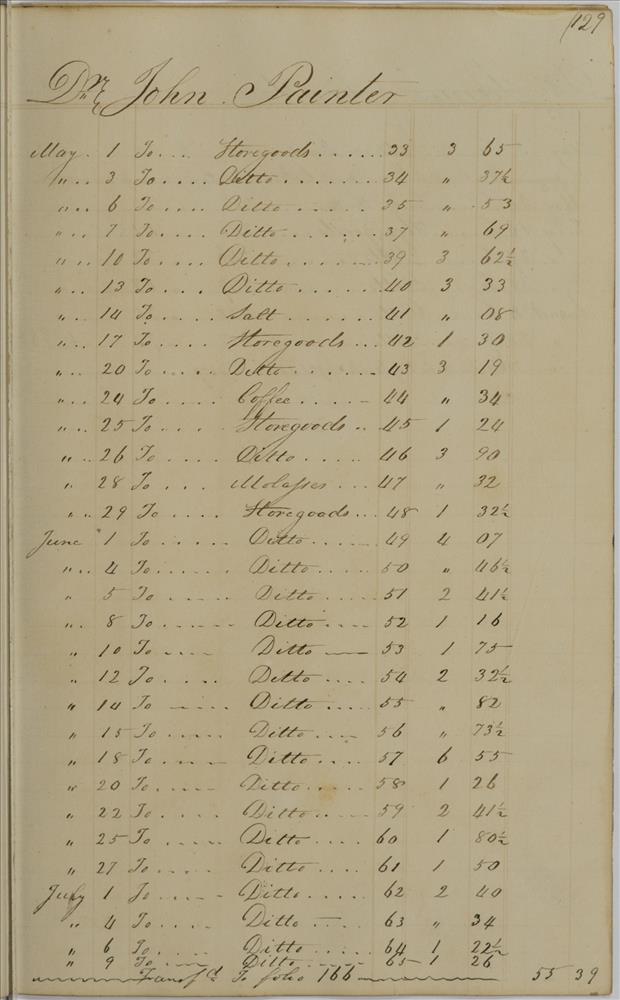 129
Dr John Painter
May . 1 To .... Storegoods ...... 33 3 65
" .. 3 To .... Ditto ....... 34 " 37½
" .. 6 To ..... Ditto ...... 35 " 53
" .. 7 To ..... Ditto ...... 37 " 69
" .. 10 To .... Ditto ...... 39 3 62½
" .. 13 To .... Ditto ...... 40 3 33
" .. 14 To ..... Salt ...... 41 " 08
" .. 17 To ..... Storegoods ... 42 1 30
" .. 20 To ..... Ditto ...... 43 3 19
" .. 24 To .... Coffee ..... 44 " 34
" .. 25 To .... Storegoods .. 45 1 24
" .. 26 To ..... Ditto ..... 46 3 90
" 28 To .... Molasses .... 47 " 32
" .. 29 To .... Storegoods ... 48 1 32½
June 1 To ...... Ditto ..... 49 4 07
" .. 4 To ...... Ditto ..... 50 " 46½
" 5 To ...... Ditto ..... 51 2 41½
" . 8 To ...... Ditto .... 52 1 16
" 10 To .... Ditto .... 53 1 75
" 12 To .... Ditto .... 54 2 32½
" 14 To .... Ditto .... 55 " 82
" 15 To ..... Ditto .... 56 " 73½
" 18 To ..... Ditto .... 57 6 55
" 20 To ..... Ditto ..... 58 1 26
" 22 To ..... Ditto ..... 59 2 41½
" 25 To ..... Ditto .... 60 1 80½
" 27 To ..... Ditto .... 61 1 50
July 1 To ..... Ditto ..... 62 2 40
" 4 To .... Ditto .... 63 " 34
" 6 To .... Ditto ..... 64 1 22½
" 9 To .... Ditto ..... 65 1 26
Transfd To folio 166 55 39